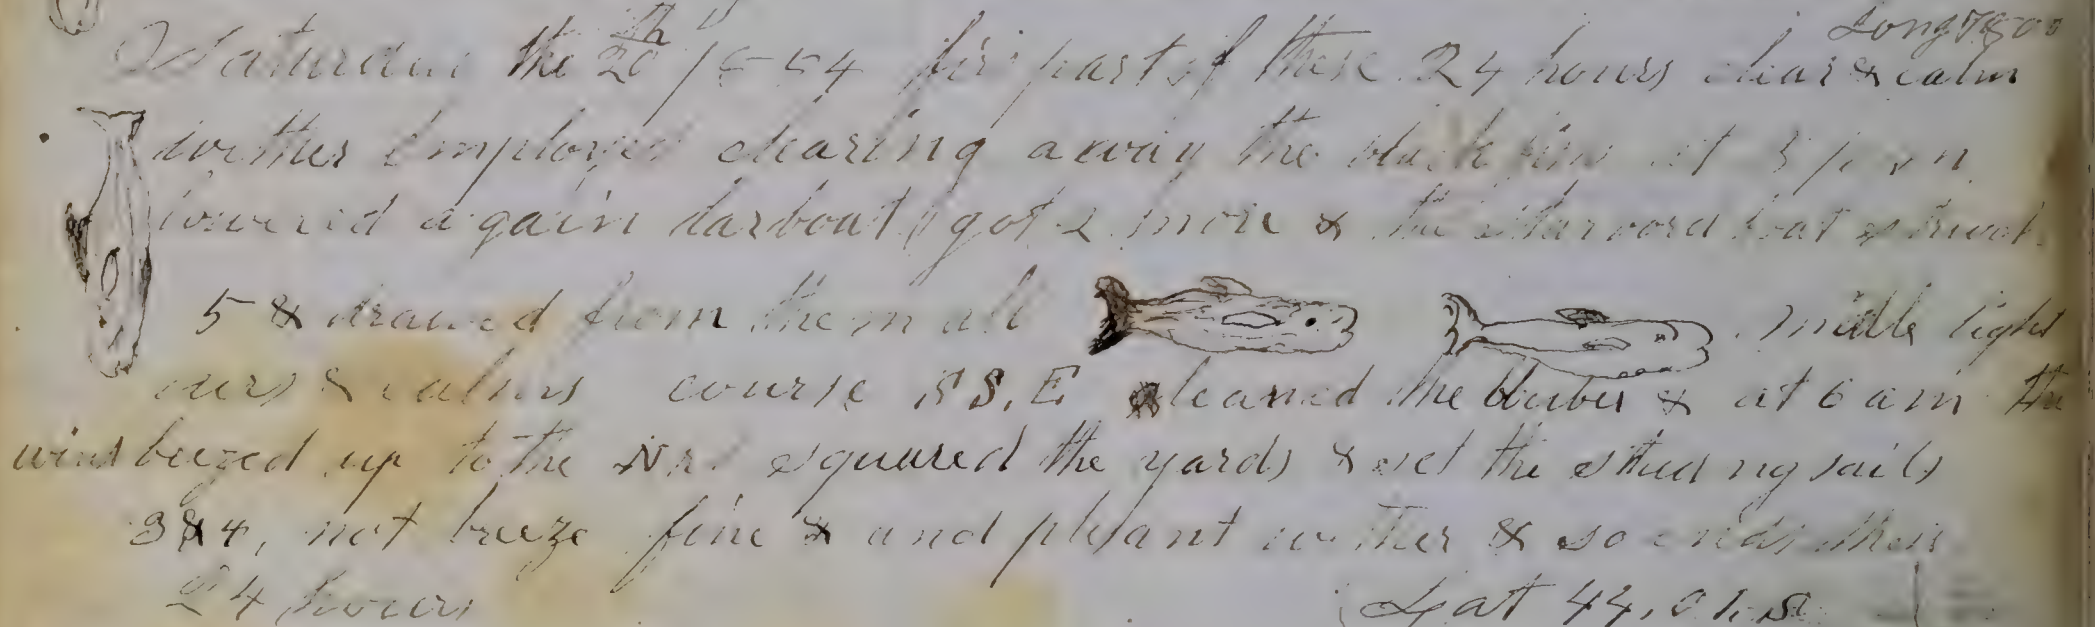 Long 78.00
Saturday the 20th 1854 firs part of these 24 hours clear & calm
wether Employed clearing away the black fins at 3 p m
lowered again larbout got 2 more & the starvord boat struck
5 & drawed from them all middle light
airs & calms course S S. E cleaned the bluber & at 6 am the
wind beezed up to the squared the yards & set the studing sails
3 & 4, not breeze fine & and plesant wether & so ends these
24 hours Lat 44,01. S